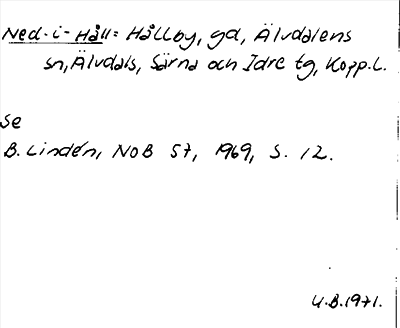 Ned-i-Håll= Hållby, gd, Älvdalens
sn, Älvdals, Särna och Idre tg, Kopp.l.
se
B. Lindén, NoB 57, 1969, S. 12.
U.B.1971.